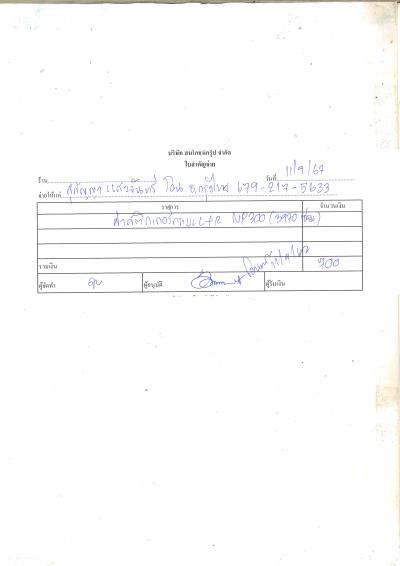 บริษัท สมใจจักรูป จำกัด
ใบสำคัญจ่าย
ร้าน วันที่ 11/9/67
จ่ายให้แก่ สุกัญญา แสวจันทร์ โอน ธ.กรุงไทย 679-217-5633
รายการ จำนวนเงิน
ค่าสติกเกอร์ L+R NP300 (3970
รวมเงิน 700
ผู้จัดทำ ผู้อนุมัติ ผู้รับเงิน